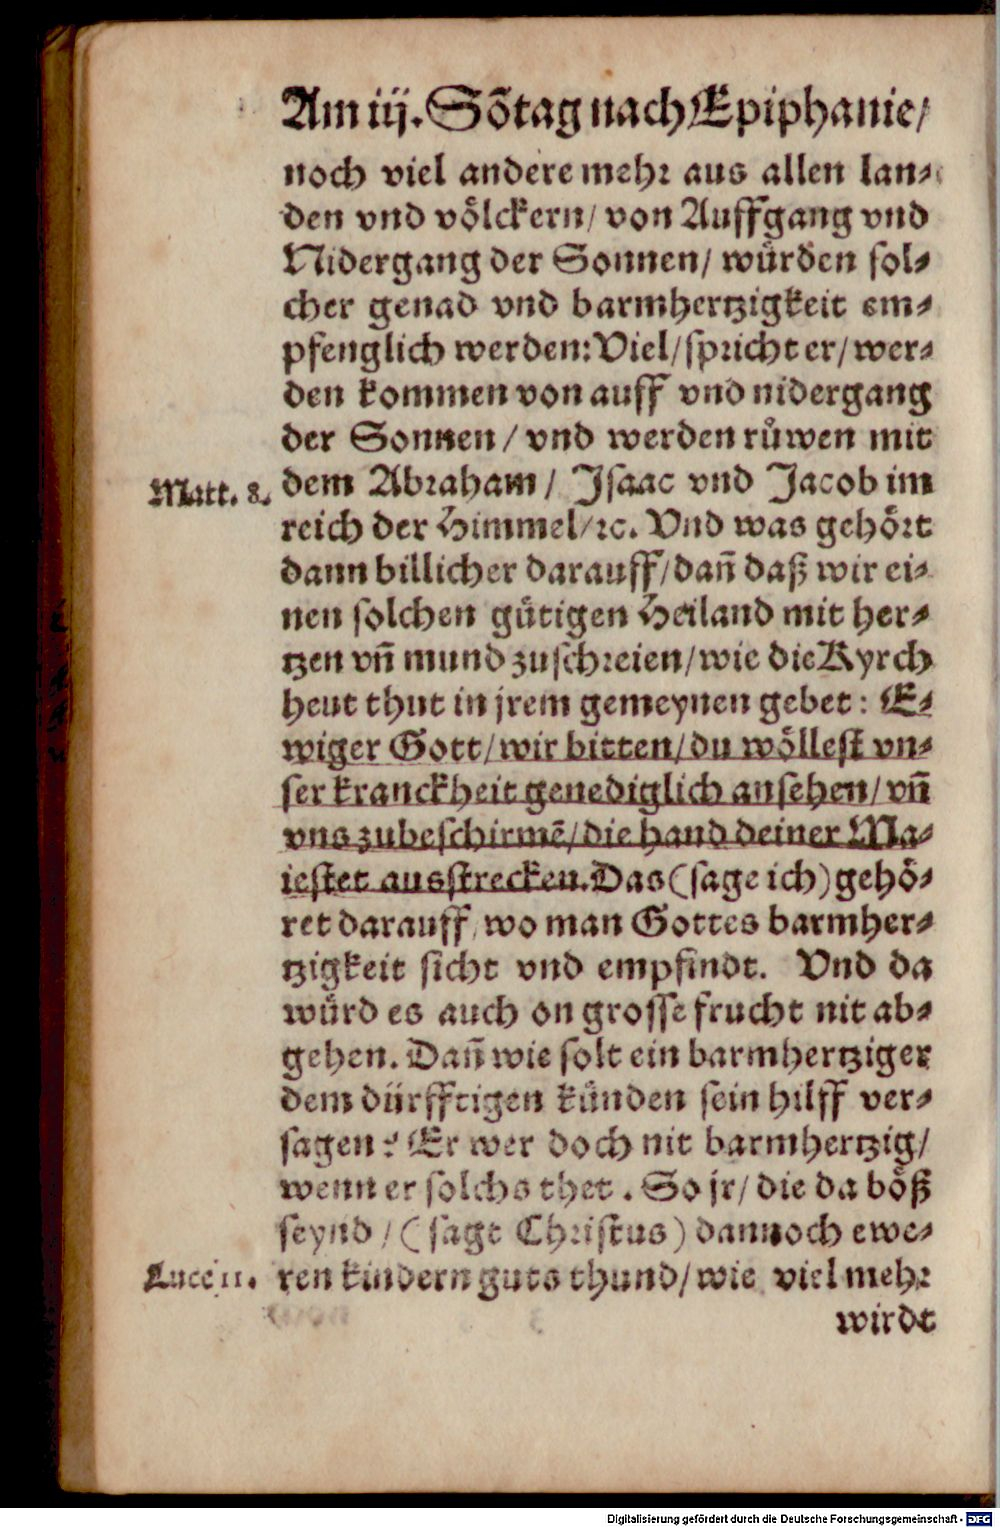 Am iij. Sõtag nach Epiphanie/
noch viel andere mehr aus allen lan⸗
den vnd völckern/ von Auffgang vnd
Nidergang der Sonnen/ würden sol⸗
cher genad vnd barmhertzigkeit em⸗
pfenglich werden: Viel/ spricht er/ wer⸗
den kommen von auff vnd nidergang
der Sonnen/ vnd werden růwen mit
Matt. 8. dem Abraham/ Isaac vnd Jacob im
reich der Himmel/ ꝛc. Vnd was gehört
dann billicher darauff/ dañ daß wir ei⸗
nen solchen gütigen Heiland mit her⸗
tzen vñ mund zuschreien/ wie die Kyrch
heut thut in jrem gemeynen gebet: E⸗
wiger Gott/ wir bitten/ du wöllest vn⸗
ser kranckheit genediglich ansehen/ vñ
vns zubeschirmẽ/ die hand deiner Ma⸗
iestet ausstrecken. Das (sage ich) gehö⸗
ret darauff, wo man Gottes barmher⸗
tzigkeit sicht vnd empfindt. Vnd da
würd es auch on grosse frucht nit ab⸗
gehen. Dañ wie solt ein barmhertziger
dem dürfftigen künden sein hilff ver⸗
sagen? Er wer doch nit barmhertzig/
wenn er solchs thet. So jr/ die da böß
seynd/ (sagt Christus) dannoch ewe⸗
Luce 11. ren kindern guts thund/ wie viel mehr
wirdt
Digitalisierung gefördert durch die Deutsche Forschungsgemeinschaft - DFG